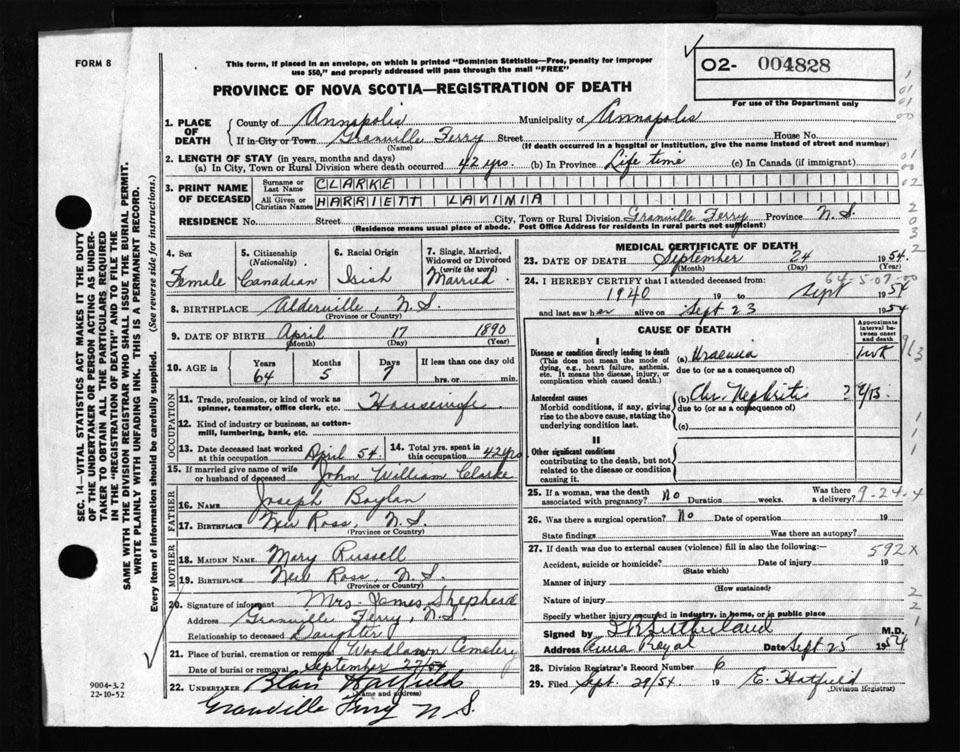 FORM 8
This form, if placed in an envelope, on which is printed "Dominion Statistics—Free, penalty for improper
use $50," and properly addressed will pass through the mail "FREE"
O2- 004828
For use of the Department only
PROVINCE OF NOVA SCOTIA—REGISTRATION OF DEATH
1. PLACE OF DEATH
County of Annapolis Municipality of Annapolis
If in City or Town Granville Ferry Street House No.
(Name) (If death occurred in a hospital or institution, give the name instead of street and number)
2. LENGTH OF STAY (in years, months and days)
(a) In City, Town or Rural Division where death occurred 42 yrs. (b) In Province Life time (c) In Canada (if immigrant)
3. PRINT NAME OF DECEASED
Surname or Last Name CLARKE
All Given or Christian Names HARRIETT LAVINIA
RESIDENCE No. Street City, Town or Rural Division Granville Ferry Province N.S.
(Residence means usual place of abode. Post Office Address for residents in rural parts not sufficient)
4. Sex
Female
5. Citizenship
(Nationality)
Canadian
6. Racial Origin
Irish
7. Single, Married, Widowed or Divorced
(write the word)
Married
8. BIRTHPLACE Alderville N.S.
(Province or Country)
9. DATE OF BIRTH April 17 1890
(Month) (Day) (Year)
10. AGE in
Years Months Days If less than one day old
64 5 7 hrs. or min.
OCCUPATION
11. Trade, profession, or kind of work as
spinner, teamster, office clerk, etc. Housewife
12. Kind of industry or business, as cotton-
mill, lumbering, bank, etc.
13. Date deceased last worked at this occupation April 54.
14. Total yrs. spent in this occupation 42 yrs
15. If married give name of wife
or husband of deceased John William Clarke
FATHER
16. Name Joseph Boylan
17. BIRTHPLACE New Ross, N.S.
(Province or Country)
MOTHER
18. MAIDEN NAME Mary Russell
19. BIRTHPLACE New Ross, N.S.
(Province or Country)
20. Signature of informant Mrs. James Shepherd
Address Granville Ferry, N.S.
Relationship to deceased Daughter
21. Place of burial, cremation or removal Woodlawn Cemetery
Date of burial or removal September 27/54
22. UNDERTAKER Blair Hatfield
(Name and address)
Granville Ferry N.S.
MEDICAL CERTIFICATE OF DEATH
23. DATE OF DEATH September 24 1954.
(Month) (Day) (Year)
64-5-07-00
24. I HEREBY CERTIFY that I attended deceased from:
1940 19 to Sept 1954
and last saw her alive on Sept 23 1954
CAUSE OF DEATH
Approximate interval between onset and death
I
Disease or condition directly leading to death
(This does not mean the mode of
dying, e.g., heart failure, asthenia,
etc. It means the disease, injury, or
complication which caused death.)
(a) Uraemia 1 wk
due to (or as a consequence of)
Antecedent causes
Morbid conditions, if any, giving
rise to the above cause, stating the
underlying condition last.
(b) Chr. Nephritis
due to (or as a consequence of)
(c)
II
Other significant conditions
contributing to the death, but not
related to the disease or condition
causing it.
25. If a woman, was the death
associated with pregnancy? No Duration weeks. Was there a delivery? 9-24-4
26. Was there a surgical operation? No Date of operation 19
State findings Was there an autopsy?
27. If death was due to external causes (violence) fill in also the following:— 592x
Accident, suicide or homicide? Date of injury 19
(State which)
Manner of injury
(How sustained)
Nature of injury
Specify whether injury occurred in industry, in home, or in public place
Signed by Sutherland M.D.
Address Anna Royal Date Sept 25 1954
28. Division Registrar's Record Number 6
29. Filed Sept. 29/54. 19 E. Hatfield
(Division Registrar)
SEC. 14—VITAL STATISTICS ACT MAKES IT THE DUTY
OF THE UNDERTAKER OR PERSON ACTING AS UNDER-
TAKER TO OBTAIN ALL THE PARTICULARS REQUIRED
IN THE "REGISTRATION OF DEATH" AND TO FILE THE
SAME WITH THE DIVISION REGISTRAR WHO SHALL ISSUE THE BURIAL PERMIT.
WRITE PLAINLY WITH UNFADING INK. THIS IS A PERMANENT RECORD.
Every item of information should be carefully supplied. (See reverse side for instructions.)
9004-3.2
22-10-52